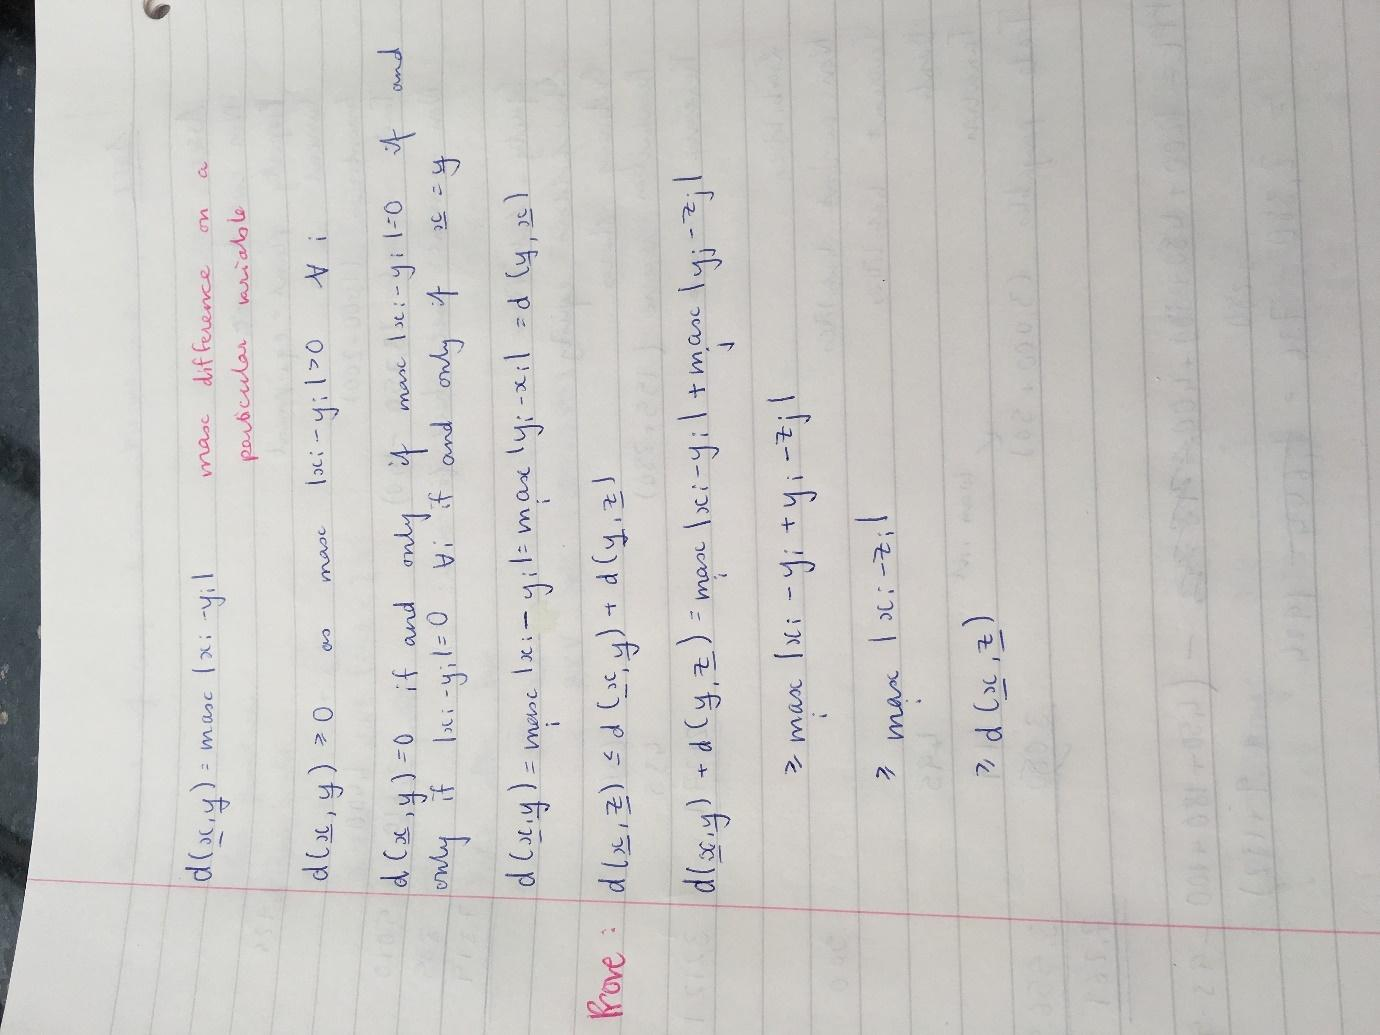 d(x,y) = max |xi - yi| max difference on a
particular variable
d(x,y) ≥ 0 as max |xi - yi| > 0 ∀ i
d(x,y) = 0 if and only if max |xi - yi| = 0 if and
only if |xi - yi| = 0 ∀i if and only if x = y
d(x,y) = max_i |xi - yi| = max_i |yi - xi| = d(y,x)
Prove : d(x,z) ≤ d(x,y) + d(y,z)
d(x,y) + d(y,z) = max_i |xi - yi| + max_j |yj - zj|
≥ max_i |xi - yi + yi - zj|
≥ max_i |xi - zi|
≥ d(x,z)